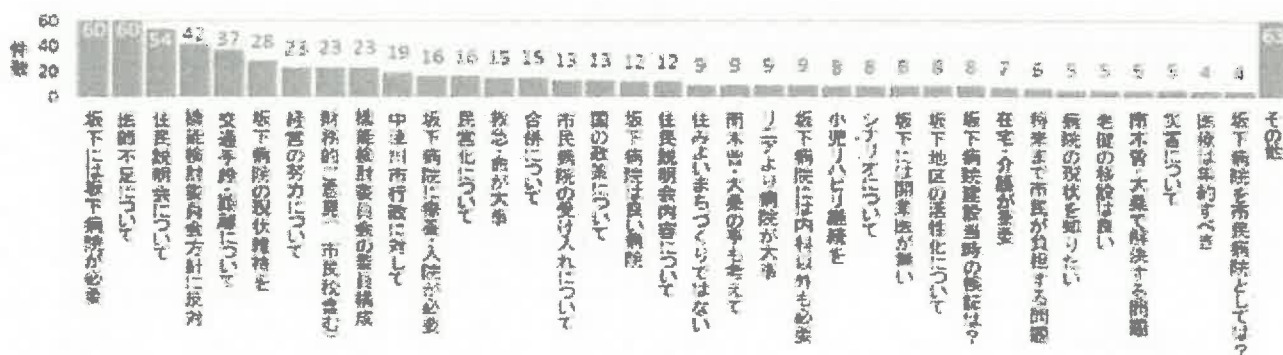 件数
60
40
20
0
60 60 54 42 37 28 23 23 23 19 16 16 15 15 13 13 12 12 9 9 9 9 8 8 8 8 8 7 6 5 5 5 5 4 4 63
坂下には坂下病院が必要
医師不足について
住民説明会について
機能検討委員会方針に反対
交通手段・距離について
坂下病院の現状維持を
経営の努力について
財務的な意見 市民税含む
機能検討委員会の委員構成
中津川市行政に対して
坂下病院に療養・入院が必要
民営化について
救急・命が大事
合併について
市民病院の受け入れについて
国の政策について
坂下病院は良い病院
住民説明会内容について
住みよいまちづくりではない
南木曽・大桑の事も考えて
リニアより病院が大事
坂下病院には内科以外も必要
小児リハビリ継続を
シナリオについて
坂下には開業医が無い
坂下地区の活性化について
坂下病院建設当時の検証は？
在宅・介護が重要
将来まで市民が負担する問題
病院の現状を知りたい
老健の移設は良い
南木曽・大桑で解決する問題
医療は集約すべき
坂下病院を市民病院としては？
その他